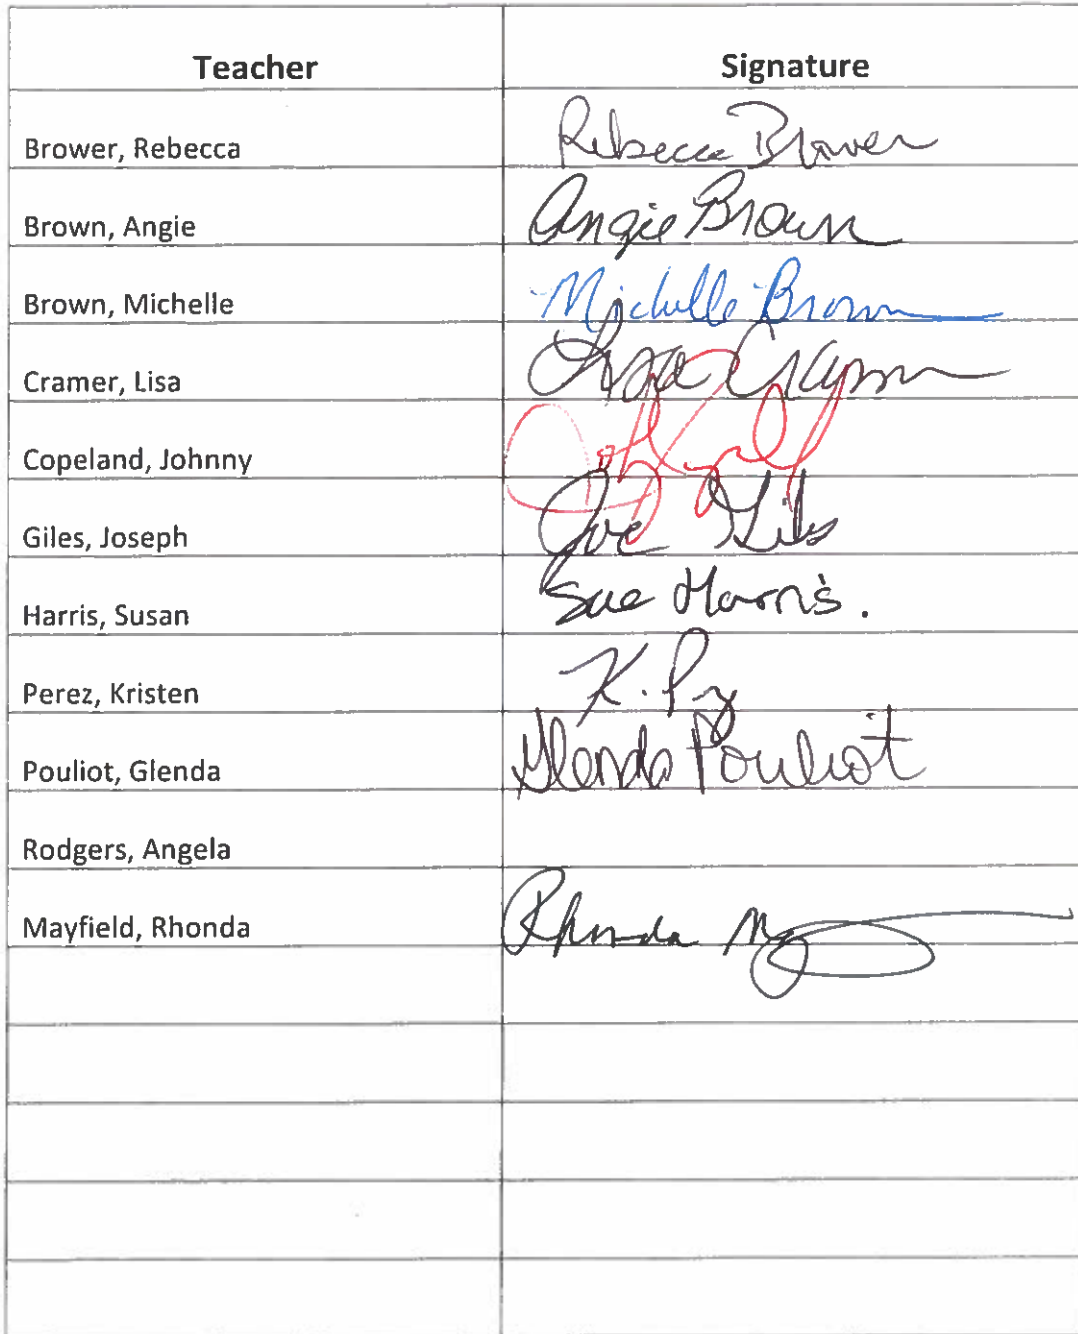 Teacher Signature
Brower, Rebecca Rebecca Brower
Brown, Angie Angie Brown
Brown, Michelle Michelle Brown
Cramer, Lisa Lisa
Copeland, Johnny
Giles, Joseph Joe Giles
Harris, Susan Sue Harris.
Perez, Kristen K.
Pouliot, Glenda Glenda Pouliot
Rodgers, Angela
Mayfield, Rhonda Rhonda